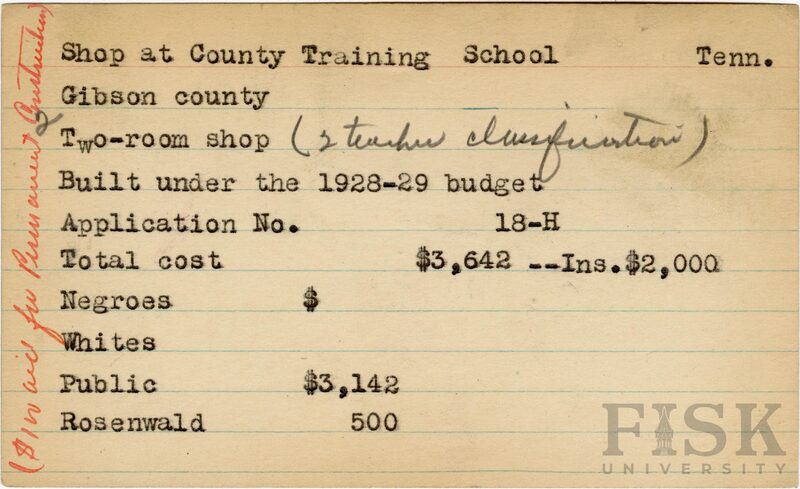 Shop at County Training School Tenn.
Gibson county
Two-room shop (2 teacher classification)
Built under the 1928-29 budget
Application No. 18-H
Total cost $3,642 --Ins.$2,000
Negroes $
Whites
Public $3,142
Rosenwald 500
($100 aid for Permanent Construction)
2
FISK
UNIVERSITY